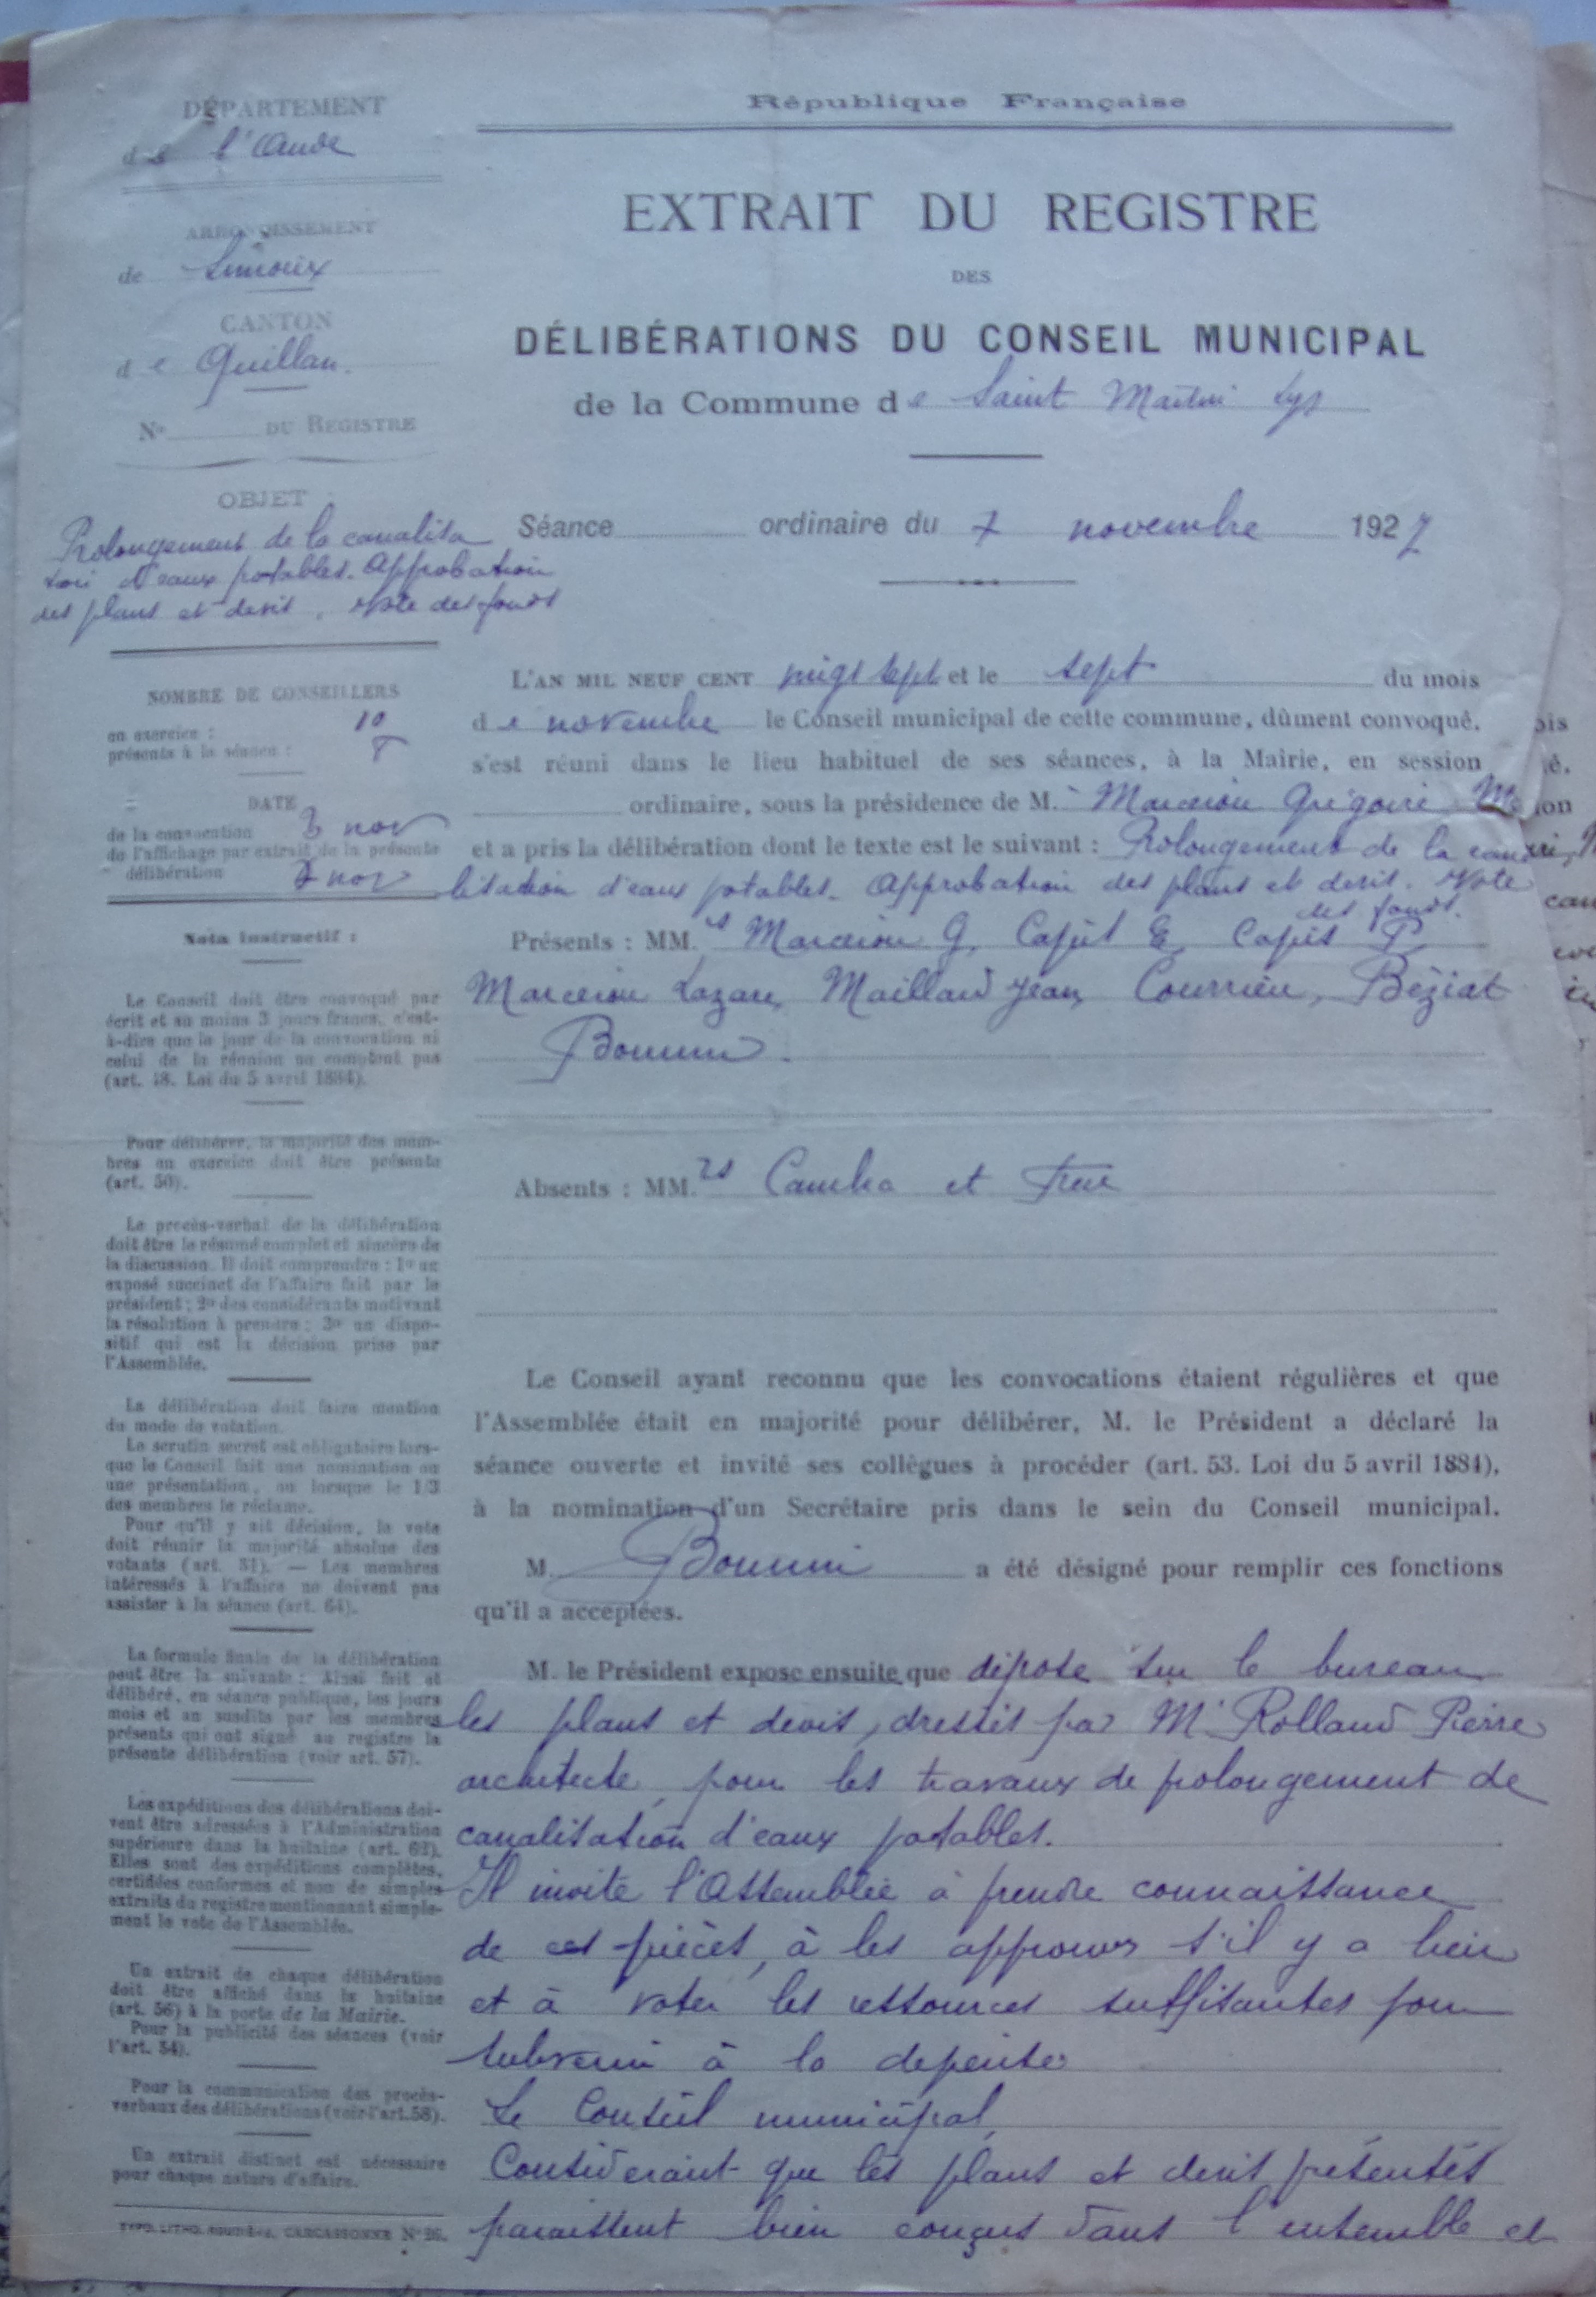 DÉPARTEMENT
de l'Aude
ARRONDISSEMENT
de Limoux
CANTON
de Quillan.
No DU REGISTRE
OBJET
Prolongement de la canalisa
tion d'eaux potables. Approbation
des plans et devis. Vote des fonds
NOMBRE DE CONSEILLERS
en exercice : 10
présents à la séance : 8
DATE
de la convocation 3 nov
de l'affichage par extrait de la présente
délibération 7 nov
Nota instructif :
Le Conseil doit être convoqué par
écrit et au moins 3 jours francs, c'est-
à-dire que le jour de la convocation ni
celui de la réunion ne comptent pas
(art. 48. Loi du 5 avril 1884).
Pour délibérer, la majorité des mem-
bres en exercice doit être présente
(art. 50).
Le procès-verbal de la délibération
doit être le résumé complet et sincère de
la discussion. Il doit comprendre : 1º un
exposé succinct de l'affaire fait par le
président ; 2º des considérants motivant
la résolution à prendre ; 3º un dispo-
sitif qui est la décision prise par
l'Assemblée.
La délibération doit faire mention
du mode de votation.
Le scrutin secret est obligatoire lors-
que le Conseil fait une nomination ou
une présentation, ou lorsque le 1/3
des membres le réclame.
Pour qu'il y ait décision, le vote
doit réunir la majorité absolue des
votants (art. 51). — Les membres
intéressés à l'affaire ne doivent pas
assister à la séance (art. 64).
La formule finale de la délibération
peut être la suivante : Ainsi fait et
délibéré, en séance publique, les jours
mois et an susdits par les membres
présents qui ont signé au registre la
présente délibération (voir art. 57).
Les expéditions des délibérations doi-
vent être adressées à l'Administration
supérieure dans la huitaine (art. 62).
Elles sont des expéditions complètes,
certifiées conformes et non de simples
extraits du registre mentionnant simple-
ment le vote de l'Assemblée.
Un extrait de chaque délibération
doit être affiché dans la huitaine
(art. 56) à la porte de la Mairie.
Pour la publicité des séances (voir
l'art. 54).
Pour la communication des procès-
verbaux des délibérations (voir l'art. 58).
Un extrait distinct est nécessaire
pour chaque nature d'affaire.
TYPO-LITHO. CARCASSONNE Nº 26.
République Française
EXTRAIT DU REGISTRE
DES
DÉLIBÉRATIONS DU CONSEIL MUNICIPAL
de la Commune de Saint Martin Lys
Séance ordinaire du 7 novembre 1927
L'AN MIL NEUF CENT vingt sept et le sept du mois
de novembre le Conseil municipal de cette commune, dûment convoqué,
s'est réuni dans le lieu habituel de ses séances, à la Mairie, en session
ordinaire, sous la présidence de M. Marcerou Grégoire
et a pris la délibération dont le texte est le suivant : Prolongement de la cana
lisation d'eaux potables. Approbation des plans et devis. Vote
des fonds.
Présents : MM.rs Marcerou G, Capit E, Capit P
Marcerou Lazare, Maillard Jean, Courrieu, Béziat
Bounin.
Absents : MM.rs Cambra et
Le Conseil ayant reconnu que les convocations étaient régulières et que
l'Assemblée était en majorité pour délibérer, M. le Président a déclaré la
séance ouverte et invité ses collègues à procéder (art. 53. Loi du 5 avril 1884),
à la nomination d'un Secrétaire pris dans le sein du Conseil municipal.
M. Bounin a été désigné pour remplir ces fonctions
qu'il a acceptées.
M. le Président expose ensuite que dépose sur le bureau
les plans et devis, dressés par Mr Rolland Pierre
architecte, pour les travaux de prolongement de
canalisation d'eaux potables.
Il invite l'Assemblée à prendre connaissance
de ces pièces, à les approuver s'il y a lieu
et à voter les ressources suffisantes pour
subvenir à la dépense
Le Conseil municipal,
Considerant que les plans et devis présentés
paraissent bien conçus dans l'ensemble et